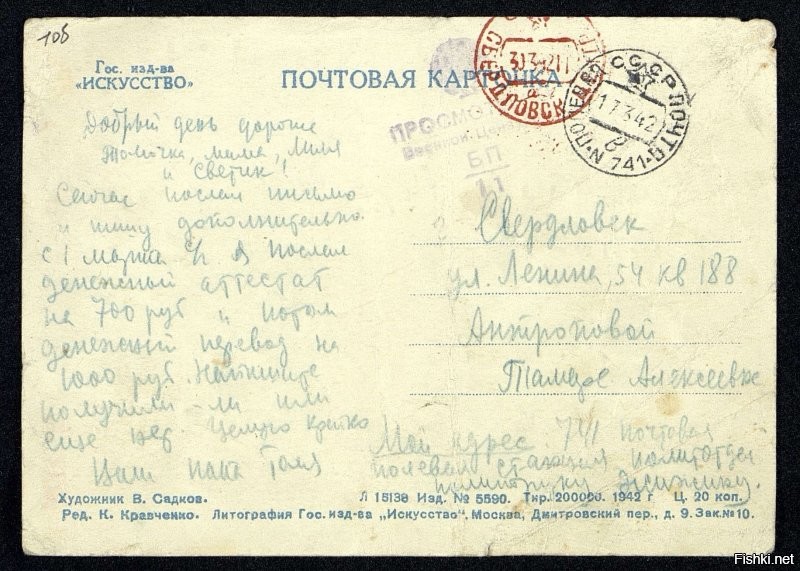 106
Гос. изд-ва
„ИСКУССТВО"
ПОЧТОВАЯ КАРТОЧКА
СВЕРДЛОВСК
30342
СССР ПОЧТА
17342
741
ПРОСМО
Военной Ценз
БП
11
Добрый день дорогие
Томочка, мама, Миля
и Светик!
Сейчас послал письмо
и пишу дополнительно
с 1 марта я послал
денежный аттестат
на 700 руб и потом
денежный перевод на
1000 руб. Напишите
получили-ли или
еще нет. Целую крепко
Ваш папа Толя
Свердловск
ул. Ленина, 54 кв 188
Антроповой
Тамаре Алексеевне
Мой адрес. 741 почтовая
полевая станция политотдел
политруку
Художник В. Садков.
Л 15138 Изд. № 5590. Тир. 200000. 1942 г Ц. 20 коп.
Ред. К. Кравченко. Литография Гос. изд-ва „Искусство". Москва, Дмитровский пер., д. 9. Зак. № 10.
Fishki.net